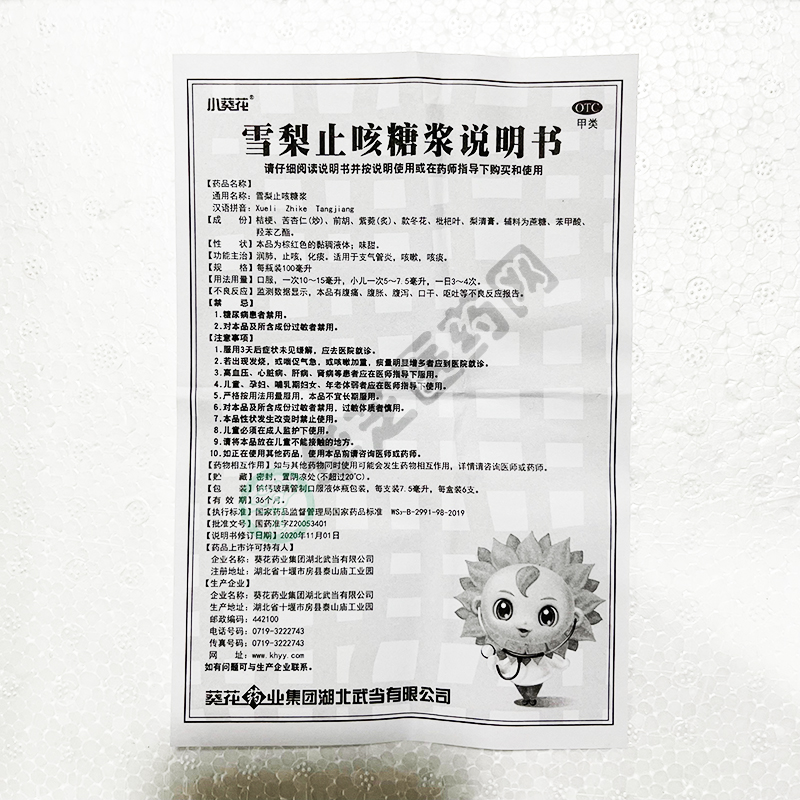 小葵花®
OTC
甲类
雪梨止咳糖浆说明书
请仔细阅读说明书并按说明使用或在药师指导下购买和使用
【药品名称】
通用名称：雪梨止咳糖浆
汉语拼音：Xueli Zhike Tangjiang
【成 份】桔梗、苦杏仁(炒)、前胡、紫菀(炙)、款冬花、枇杷叶、梨清膏。辅料为蔗糖、苯甲酸、
羟苯乙酯。
【性 状】本品为棕红色的黏稠液体；味甜。
【功能主治】润肺，止咳，化痰。适用于支气管炎，咳嗽，咳痰。
【规 格】每瓶装100毫升
【用法用量】口服，一次10～15毫升，小儿一次5～7.5毫升，一日3～4次。
【不良反应】监测数据显示，本品有腹痛、腹胀、腹泻、口干、呕吐等不良反应报告。
【禁 忌】
1.糖尿病患者禁用。
2.对本品及所含成份过敏者禁用。
【注意事项】
1.服用3天后症状未见缓解，应去医院就诊。
2.若出现发烧，或喘促气急，或咳嗽加重，痰量明显增多者应到医院就诊。
3.高血压、心脏病、肝病、肾病等患者应在医师指导下服用。
4.儿童、孕妇、哺乳期妇女、年老体弱者应在医师指导下使用。
5.严格按用法用量服用，本品不宜长期服用。
6.对本品及所含成份过敏者禁用，过敏体质者慎用。
7.本品性状发生改变时禁止使用。
8.儿童必须在成人监护下使用。
9.请将本品放在儿童不能接触的地方。
10.如正在使用其他药品，使用本品前请咨询医师或药师。
【药物相互作用】如与其他药物同时使用可能会发生药物相互作用，详情请咨询医师或药师。
【贮 藏】密封，置阴凉处(不超过20℃)。
【包 装】钠钙玻璃管制口服液体瓶包装，每支装7.5毫升，每盒装6支。
【有 效 期】36个月。
【执行标准】国家药品监督管理局国家药品标准 WS₃-B-2991-98-2019
【批准文号】国药准字Z20053401
【说明书修订日期】2020年11月01日
【药品上市许可持有人】
企业名称：葵花药业集团湖北武当有限公司
注册地址：湖北省十堰市房县泰山庙工业园
【生产企业】
企业名称：葵花药业集团湖北武当有限公司
生产地址：湖北省十堰市房县泰山庙工业园
邮政编码：442100
电话号码：0719-3222743
传真号码：0719-3222743
网 址：www.khyy.com
如有问题可与生产企业联系。
葵花药业集团湖北武当有限公司